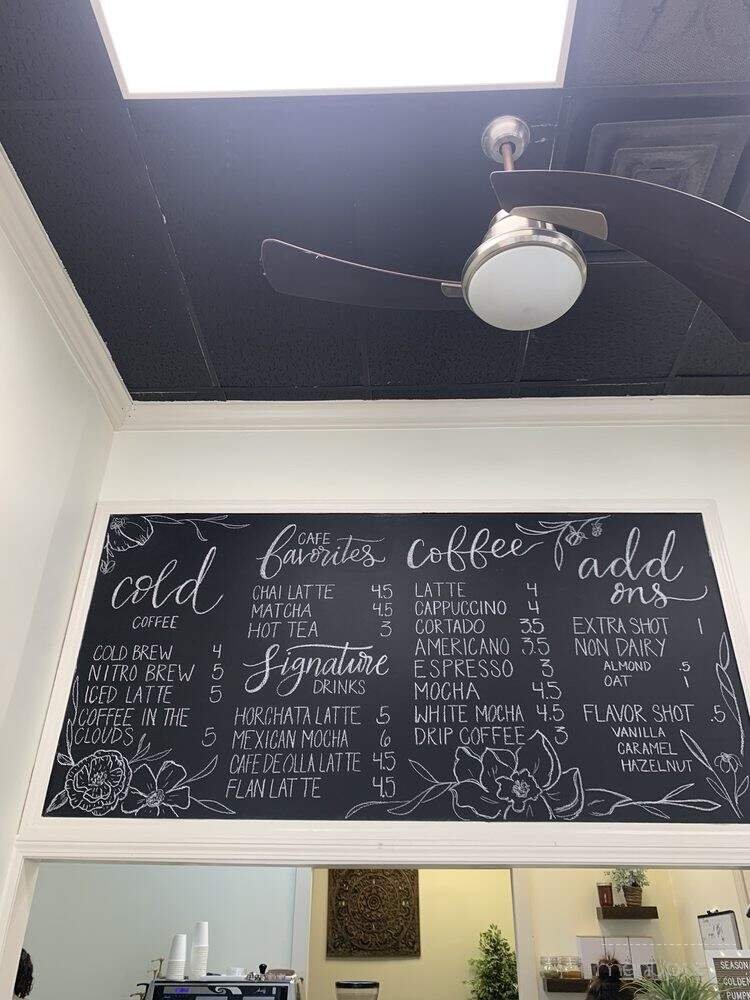 cold
COFFEE
COLD BREW 4
NITRO BREW 5
ICED LATTE 5
COFFEE IN THE
CLOUDS 5
CAFE
favorites
CHAI LATTE 4.5
MATCHA 4.5
HOT TEA 3
Signature
DRINKS
HORCHATA LATTE 5
MEXICAN MOCHA 6
CAFE DE OLLA LATTE 4.5
FLAN LATTE 4.5
coffee
LATTE 4
CAPPUCCINO 4
CORTADO 3.5
AMERICANO 3.5
ESPRESSO 3
MOCHA 4.5
WHITE MOCHA 4.5
DRIP COFFEE 3
add
ons
EXTRA SHOT 1
NON DAIRY
ALMOND .5
OAT 1
FLAVOR SHOT .5
VANILLA
CARAMEL
HAZELNUT
SEASON
GOLDEN
PUMP